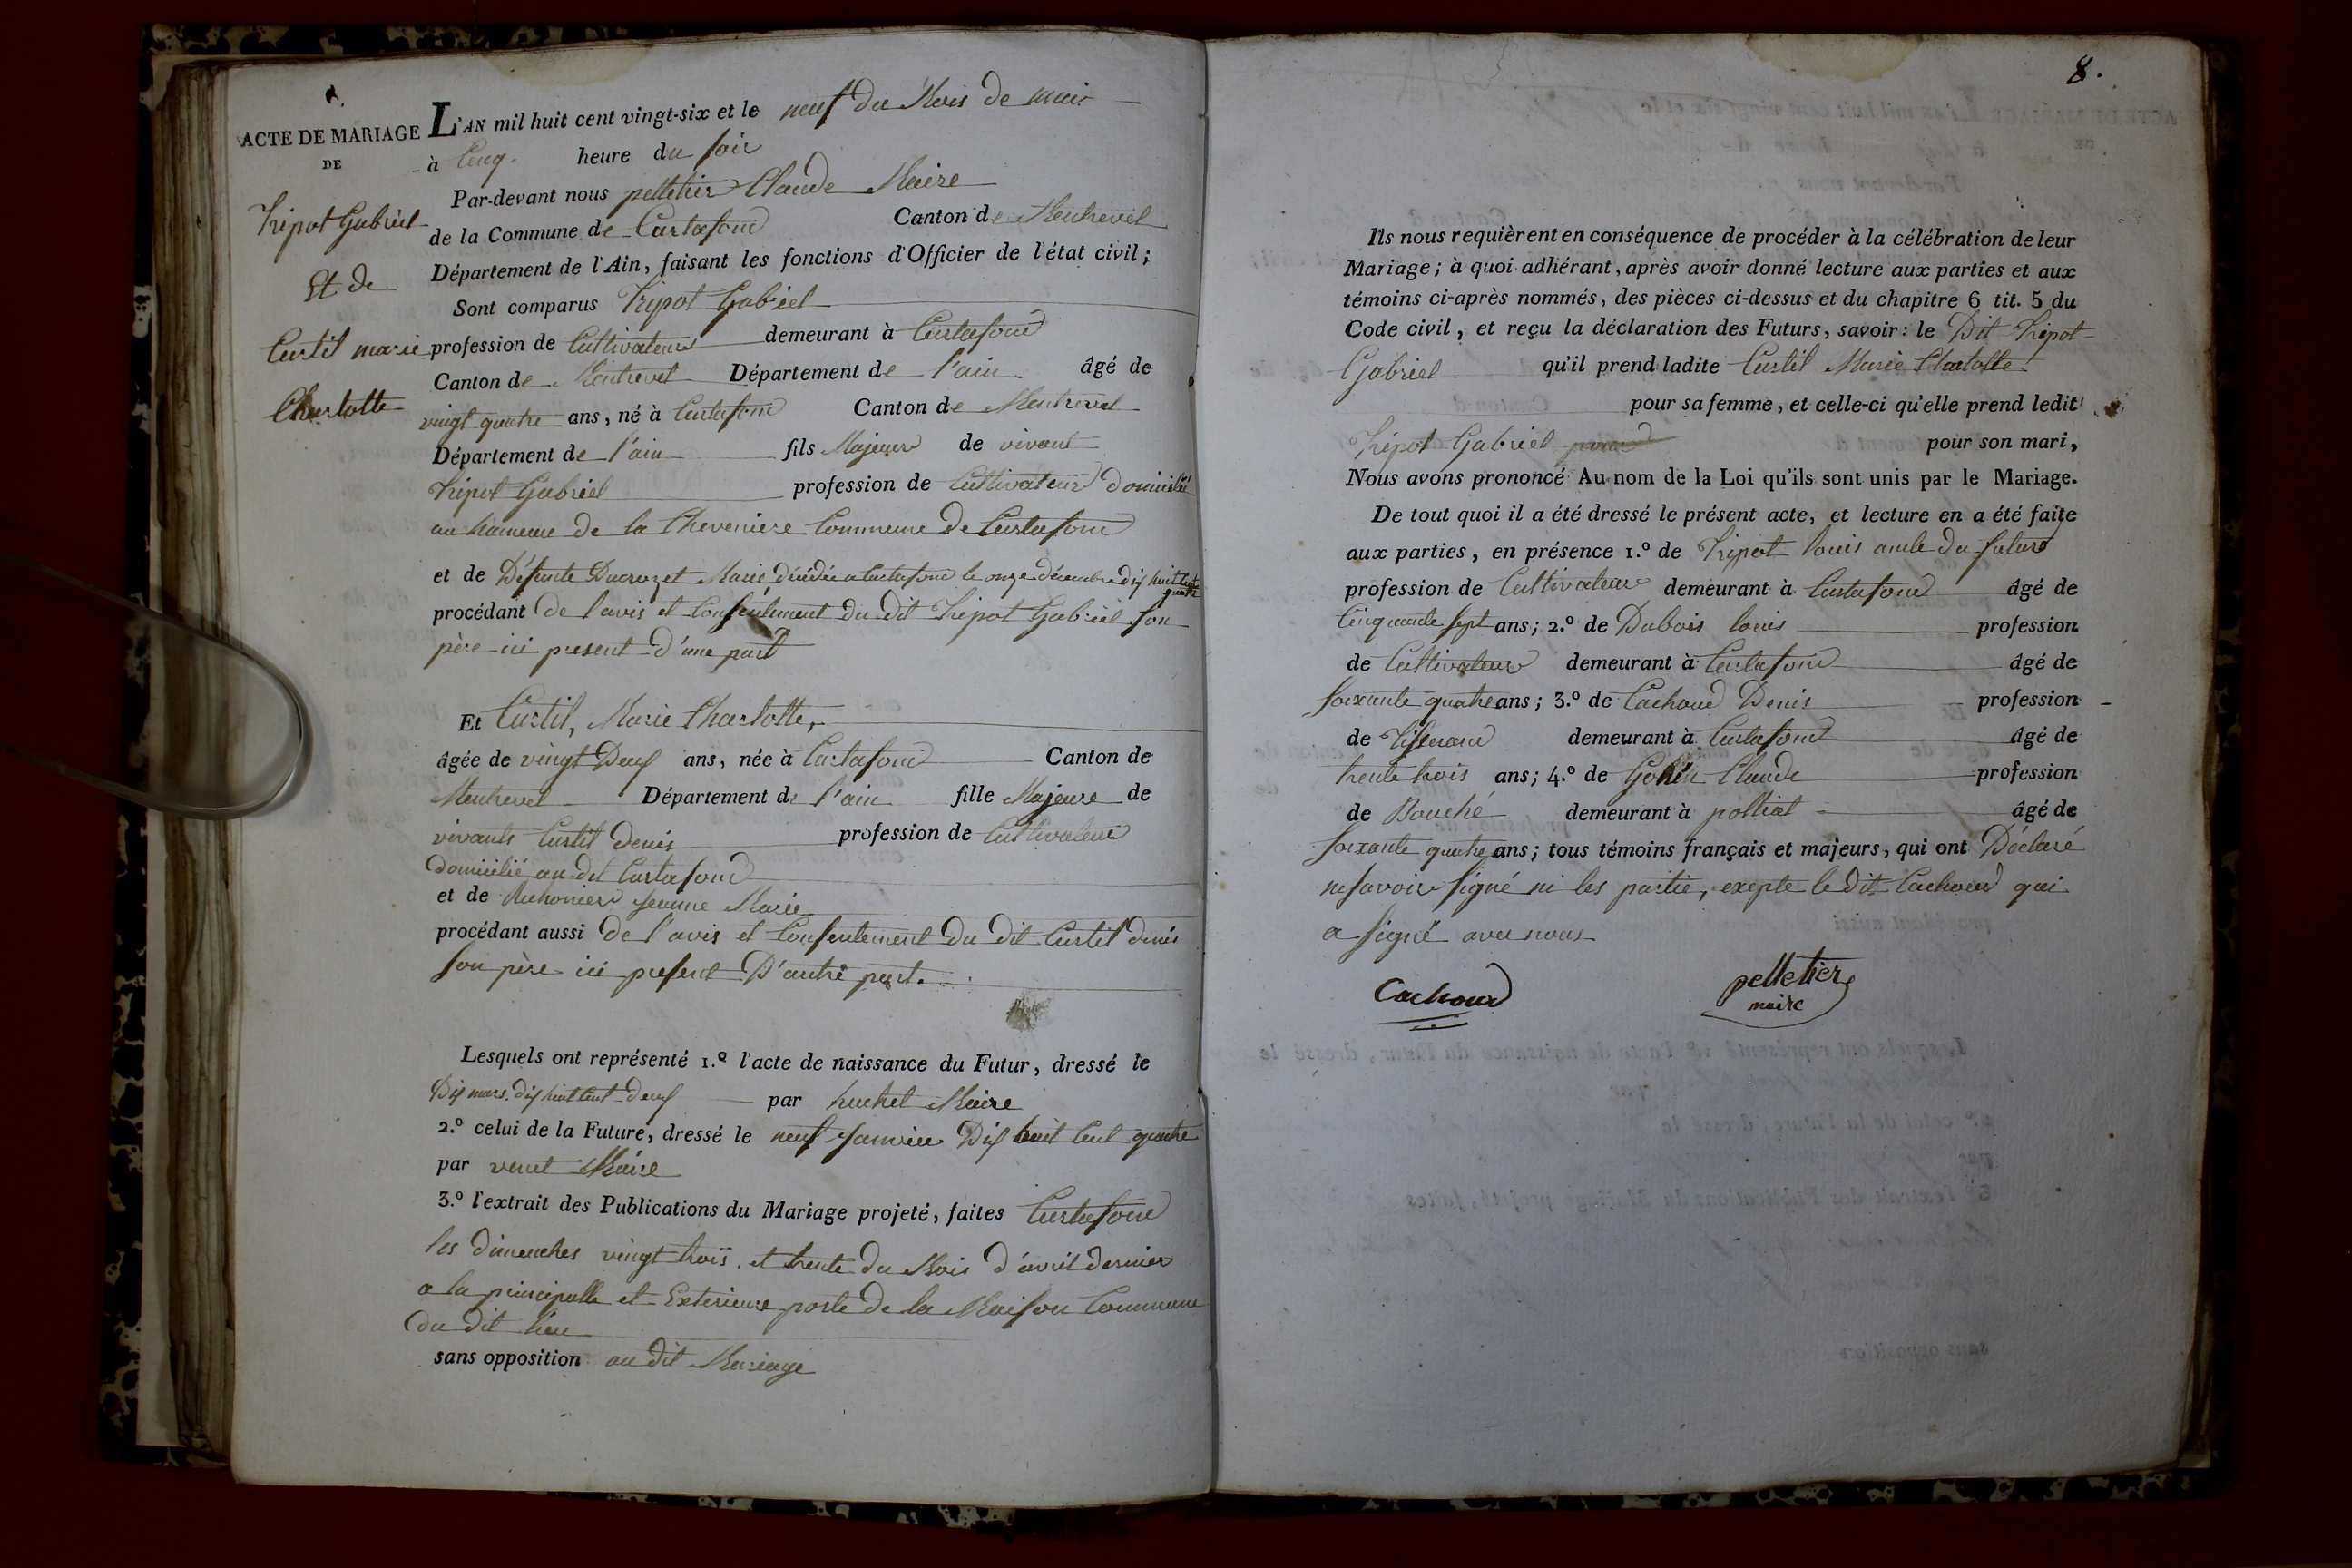 ACTE DE MARIAGE
DE
Tripot Gabriel
Et de
Curtil marie
Charlotte
L'AN mil huit cent vingt-six et le neuf du Mois de mai
à Cinq heure du soir
Par-devant nous pelletier Claude Maire
de la Commune de Curtafond Canton de Montrevel
Département de l'Ain, faisant les fonctions d'Officier de l'état civil;
Sont comparus Tripot Gabriel
profession de Cultivateur demeurant à Curtafond
Canton de Montrevel Département de l'ain âgé de
vingt quatre ans, né à Curtafond Canton de Montrevel
Département de l'ain fils Majeur de vivant
Tripot Gabriel profession de Cultivateur domicilié
au hameau de la Cheveniere Commune de Curtafond
et de Défunte Ducrozet Marie décédée a Curtafond le onze décembre dix huit cent quatre
procédant de l'avis et Consentement du dit Tripot Gabriel son
père ici present d'une part
Et Curtil, Marie Charlotte,
âgée de vingt Deux ans, née à Curtafond Canton de
Montrevel Département de l'ain fille Majeure de
vivants Curtil denis profession de Cultivateur
domicilié au dit Curtafond
et de Jeanne Marie
procédant aussi de l'avis et Consentement du dit Curtil denis
son père ici present D'autre part.
Lesquels ont représenté 1.º l'acte de naissance du Futur, dressé le
Dix mars dix huit cent deux par huchet Maire
2.º celui de la Future, dressé le neuf Janvier Dix huit Cent quatre
par venet Maire
3.º l'extrait des Publications du Mariage projeté, faites Curtafond
les dimenches vingt trois et trente du Mois d'avril dernier
a la principalle et Exterieure porte de la Maison Commune
du dit lieu
sans opposition au dit Mariage
8.
Ils nous requièrent en conséquence de procéder à la célébration de leur
Mariage; à quoi adhérant, après avoir donné lecture aux parties et aux
témoins ci-après nommés, des pièces ci-dessus et du chapitre 6 tit. 5 du
Code civil, et reçu la déclaration des Futurs, savoir: le Dit Tripot
Gabriel qu'il prend ladite Curtil Marie Charlotte
pour sa femme, et celle-ci qu'elle prend ledit
Tripot Gabriel pour son mari,
Nous avons prononcé Au nom de la Loi qu'ils sont unis par le Mariage.
De tout quoi il a été dressé le présent acte, et lecture en a été faite
aux parties, en présence 1.º de Tripot louis oncle du futur
profession de Cultivateur demeurant à Curtafond âgé de
Cinquante sept ans; 2.º de Dubois louis profession
de Cultivateur demeurant à Curtafond âgé de
soixante quatre ans; 3.º de Cachoud Denis profession
de Tisserand demeurant à Curtafond âgé de
trente trois ans; 4.º de Claude profession
de Bouché demeurant à polliat âgé de
soixante quatre ans; tous témoins français et majeurs, qui ont Déclaré
ne savoir signé ni les partie, exepte le dit Cachoud qui
a signé avec nous
Cachoud
pelletier
maire